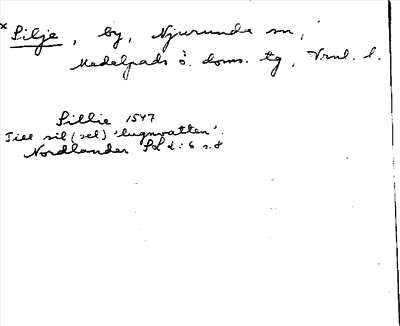 × Silje, by, Njurunda sn,
Medelpads ö. doms. tg, Vrnl. l.
Sillie 1547
Till sil (sel) 'lugnvatten'.
Nordlander SL 2:6 s.8